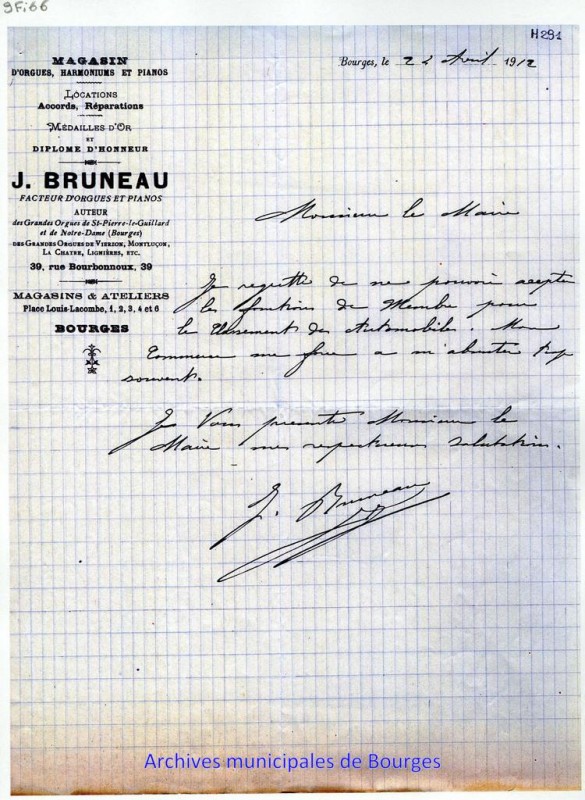 9Fi66
H291
MAGASIN
D'ORGUES, HARMONIUMS ET PIANOS
LOCATIONS
Accords, Réparations
MÉDAILLES D'OR
ET
DIPLOME D'HONNEUR
J. BRUNEAU
FACTEUR D'ORGUES ET PIANOS
AUTEUR
des Grandes Orgues de St-Pierre-le-Guillard
et de Notre-Dame (Bourges)
DES GRANDES ORGUES DE VIERZON, MONTLUÇON,
LA CHATRE, LIGNIÈRES, ETC.
39, rue Bourbonnoux, 39
MAGASINS & ATELIERS
Place Louis-Lacombe, 1, 2, 3, 4 et 6
BOURGES
Bourges, le 22 Avril 1912
Monsieur le Maire
Je regrette de ne pouvoir accepter
les fonctions de Membre pour
le Classement des Automobiles. Mon
Commerce me force a m'absenter trop
souvent.
Je Vous présente Monsieur le
Maire mes respectueuses salutations.
J. Bruneau
Archives municipales de Bourges